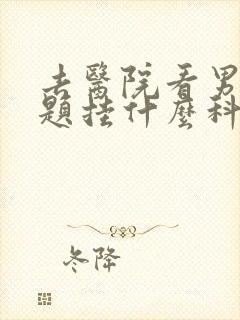 去醫院看男
題挂什麼科
冬降